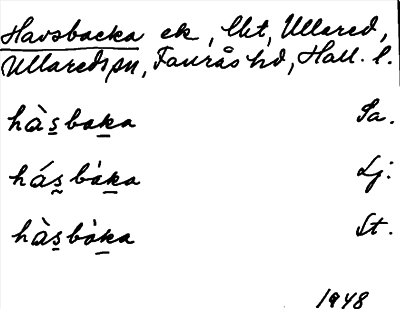 Havsbacka ek, lht, Ullared,
Ullareds sn, Faurås hd, Hall. l.
hàs̲bak̲a Sa.
hás̰bàk̲a Lj.
hàs̲bàk̲a St.
1948